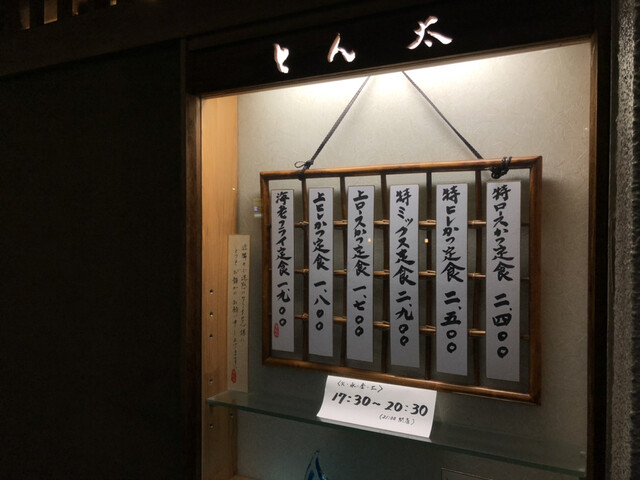 とん太
特ロースかつ定食 二、四〇〇
特ヒレかつ定食 二、五〇〇
特ミックス定食 二、九〇〇
上ロースかつ定食 一、七〇〇
上ヒレかつ定食 一、八〇〇
海老フライ定食 一、九〇〇
17:30～20:30
(21:00 閉店)